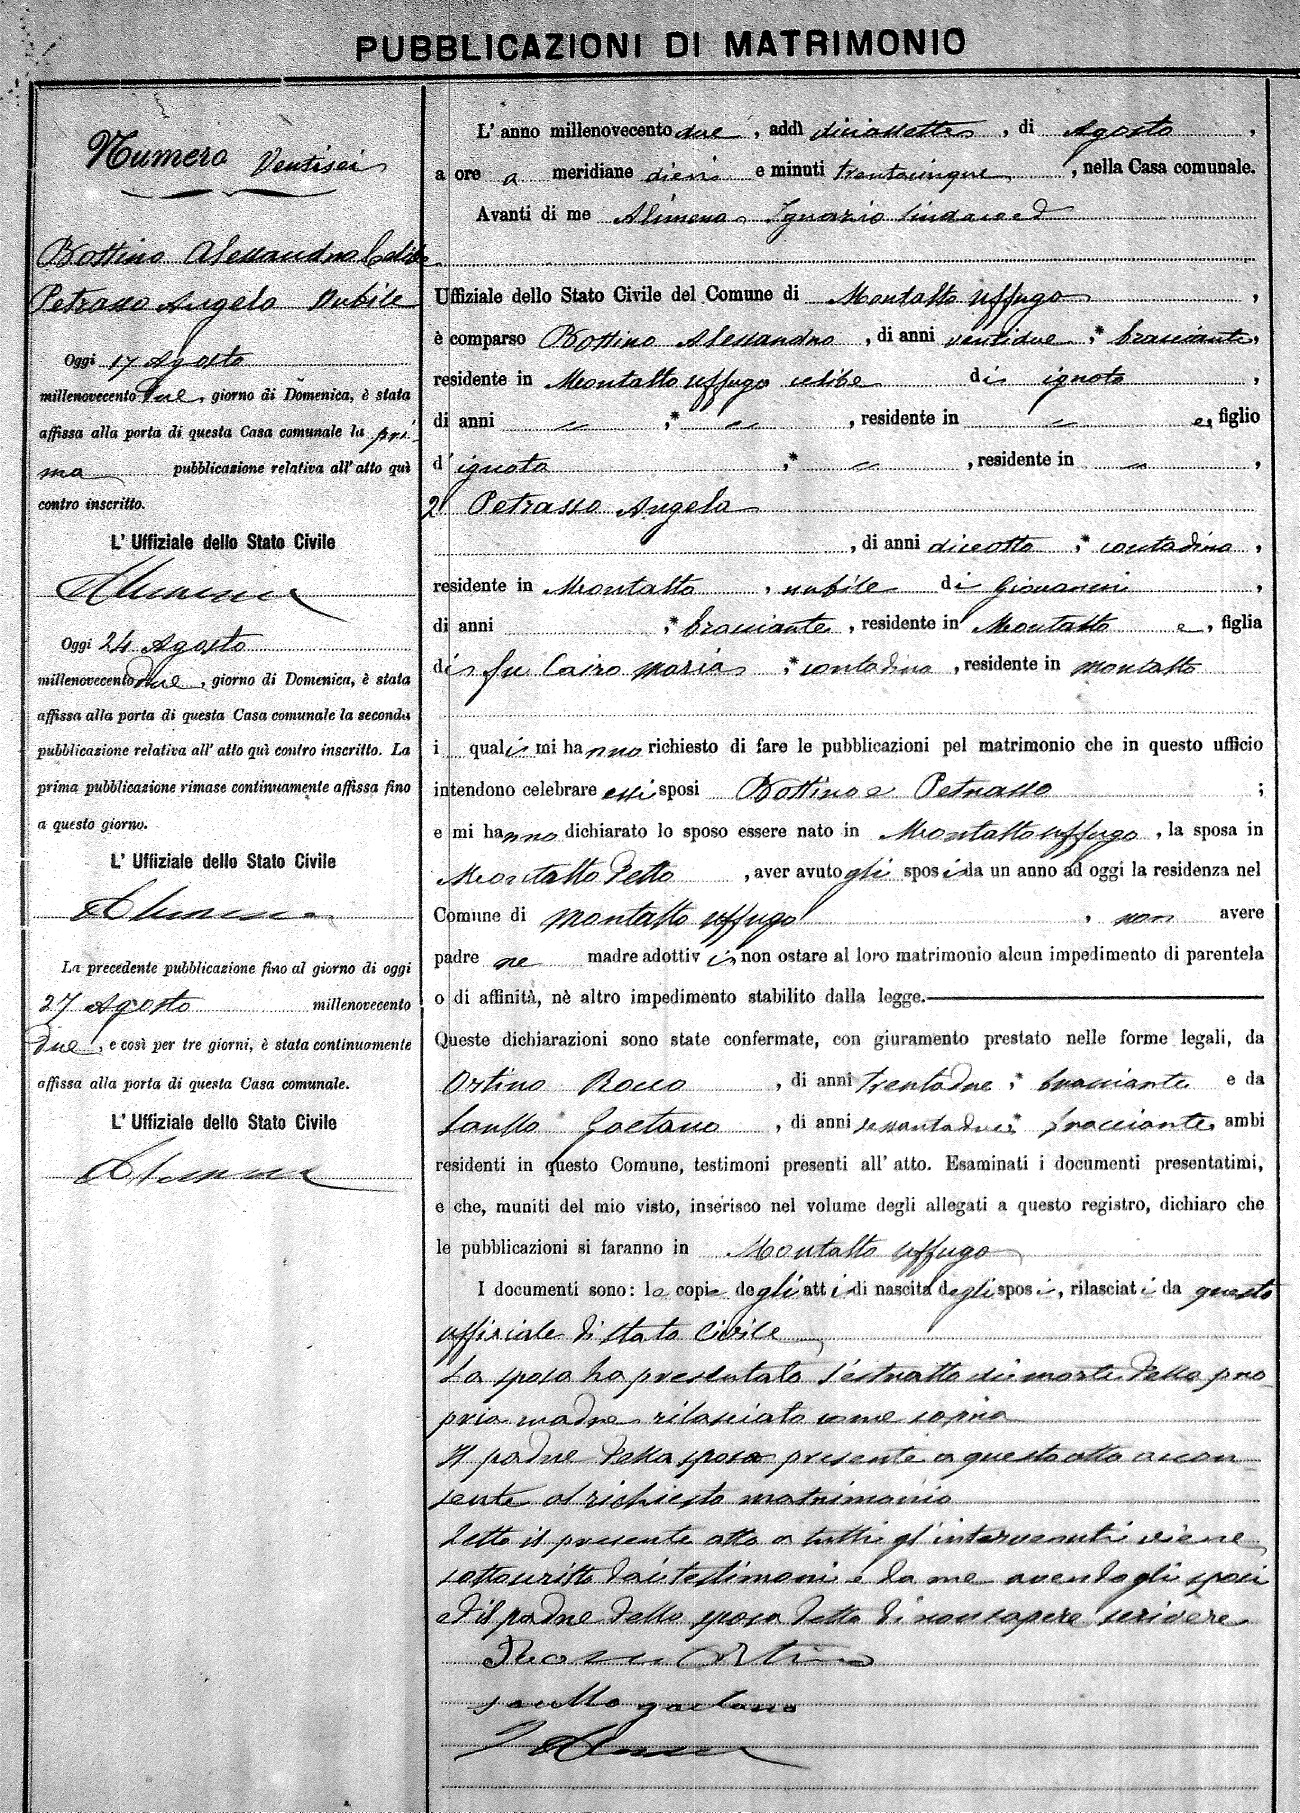 PUBBLICAZIONI DI MATRIMONIO
Numero Ventisei
Bottino Alessandro Celibe
Petrasso Angela Nubile
Oggi 17 Agosto
millenovecento due, giorno di Domenica, è stata
affissa alla porta di questa Casa comunale la pri-
ma pubblicazione relativa all'atto quì
contro inscritto.
L'Uffiziale dello Stato Civile
Alimena
Oggi 24 Agosto
millenovecento due, giorno di Domenica, è stata
affissa alla porta di questa Casa comunale la seconda
pubblicazione relativa all'atto quì contro inscritto. La
prima pubblicazione rimase continuamente affissa fino
a questo giorno.
L'Uffiziale dello Stato Civile
Alimena
La precedente pubblicazione fino al giorno di oggi
27 Agosto millenovecento
due, e così per tre giorni, è stata continuamente
affissa alla porta di questa Casa comunale.
L'Uffiziale dello Stato Civile
Alimena
L'anno millenovecento due, addì diciassette, di Agosto,
a ore a meridiane dieci e minuti trentacinque, nella Casa comunale.
Avanti di me Alimena Ignazio Sindaco ed
Uffiziale dello Stato Civile del Comune di Montalto Uffugo,
è comparso Bottino Alessandro, di anni ventidue,* bracciante,
residente in Montalto Uffugo celibe di ignoto,
di anni " ,* " , residente in " e, figlio
d'ignota ,* " , residente in " ,
2° Petrasso Angela
, di anni diciotto,* contadina,
residente in Montalto, nubile di Giovanni,
di anni ,* bracciante, residente in Montalto e, figlia
di fu Cairo Maria,* contadina, residente in Montalto
i quali mi hanno richiesto di fare le pubblicazioni pel matrimonio che in questo ufficio
intendono celebrare essi sposi Bottino e Petrasso ;
e mi hanno dichiarato lo sposo essere nato in Montalto Uffugo, la sposa in
Montalto detto, aver avuto gli sposi da un anno ad oggi la residenza nel
Comune di Montalto Uffugo, non avere
padre ne madre adottivi, non ostare al loro matrimonio alcun impedimento di parentela
o di affinità, nè altro impedimento stabilito dalla legge.
Queste dichiarazioni sono state confermate, con giuramento prestato nelle forme legali, da
Ortino Rocco, di anni trentadue,* bracciante e da
Saullo Gaetano, di anni sessantadue,* bracciante, ambi
residenti in questo Comune, testimoni presenti all'atto. Esaminati i documenti presentatimi,
e che, muniti del mio visto, inserisco nel volume degli allegati a questo registro, dichiaro che
le pubblicazioni si faranno in Montalto Uffugo
I documenti sono: le copie degli atti di nascita degli sposi, rilasciati da questo
uffiziale di stato Civile
La sposa ha presentato l'estratto di morte della pro-
pria madre rilasciato come sopra
Il padre della sposa presente a questo atto accon-
sente al richiesto matrimonio
Letto il presente atto a tutti gl'intervenuti viene
sottoscritto dai testimoni e da me avendo gli sposi
ed il padre della sposa detto di non sapere scrivere
Rocco Ortino
Saullo Gaetano
I Alimena